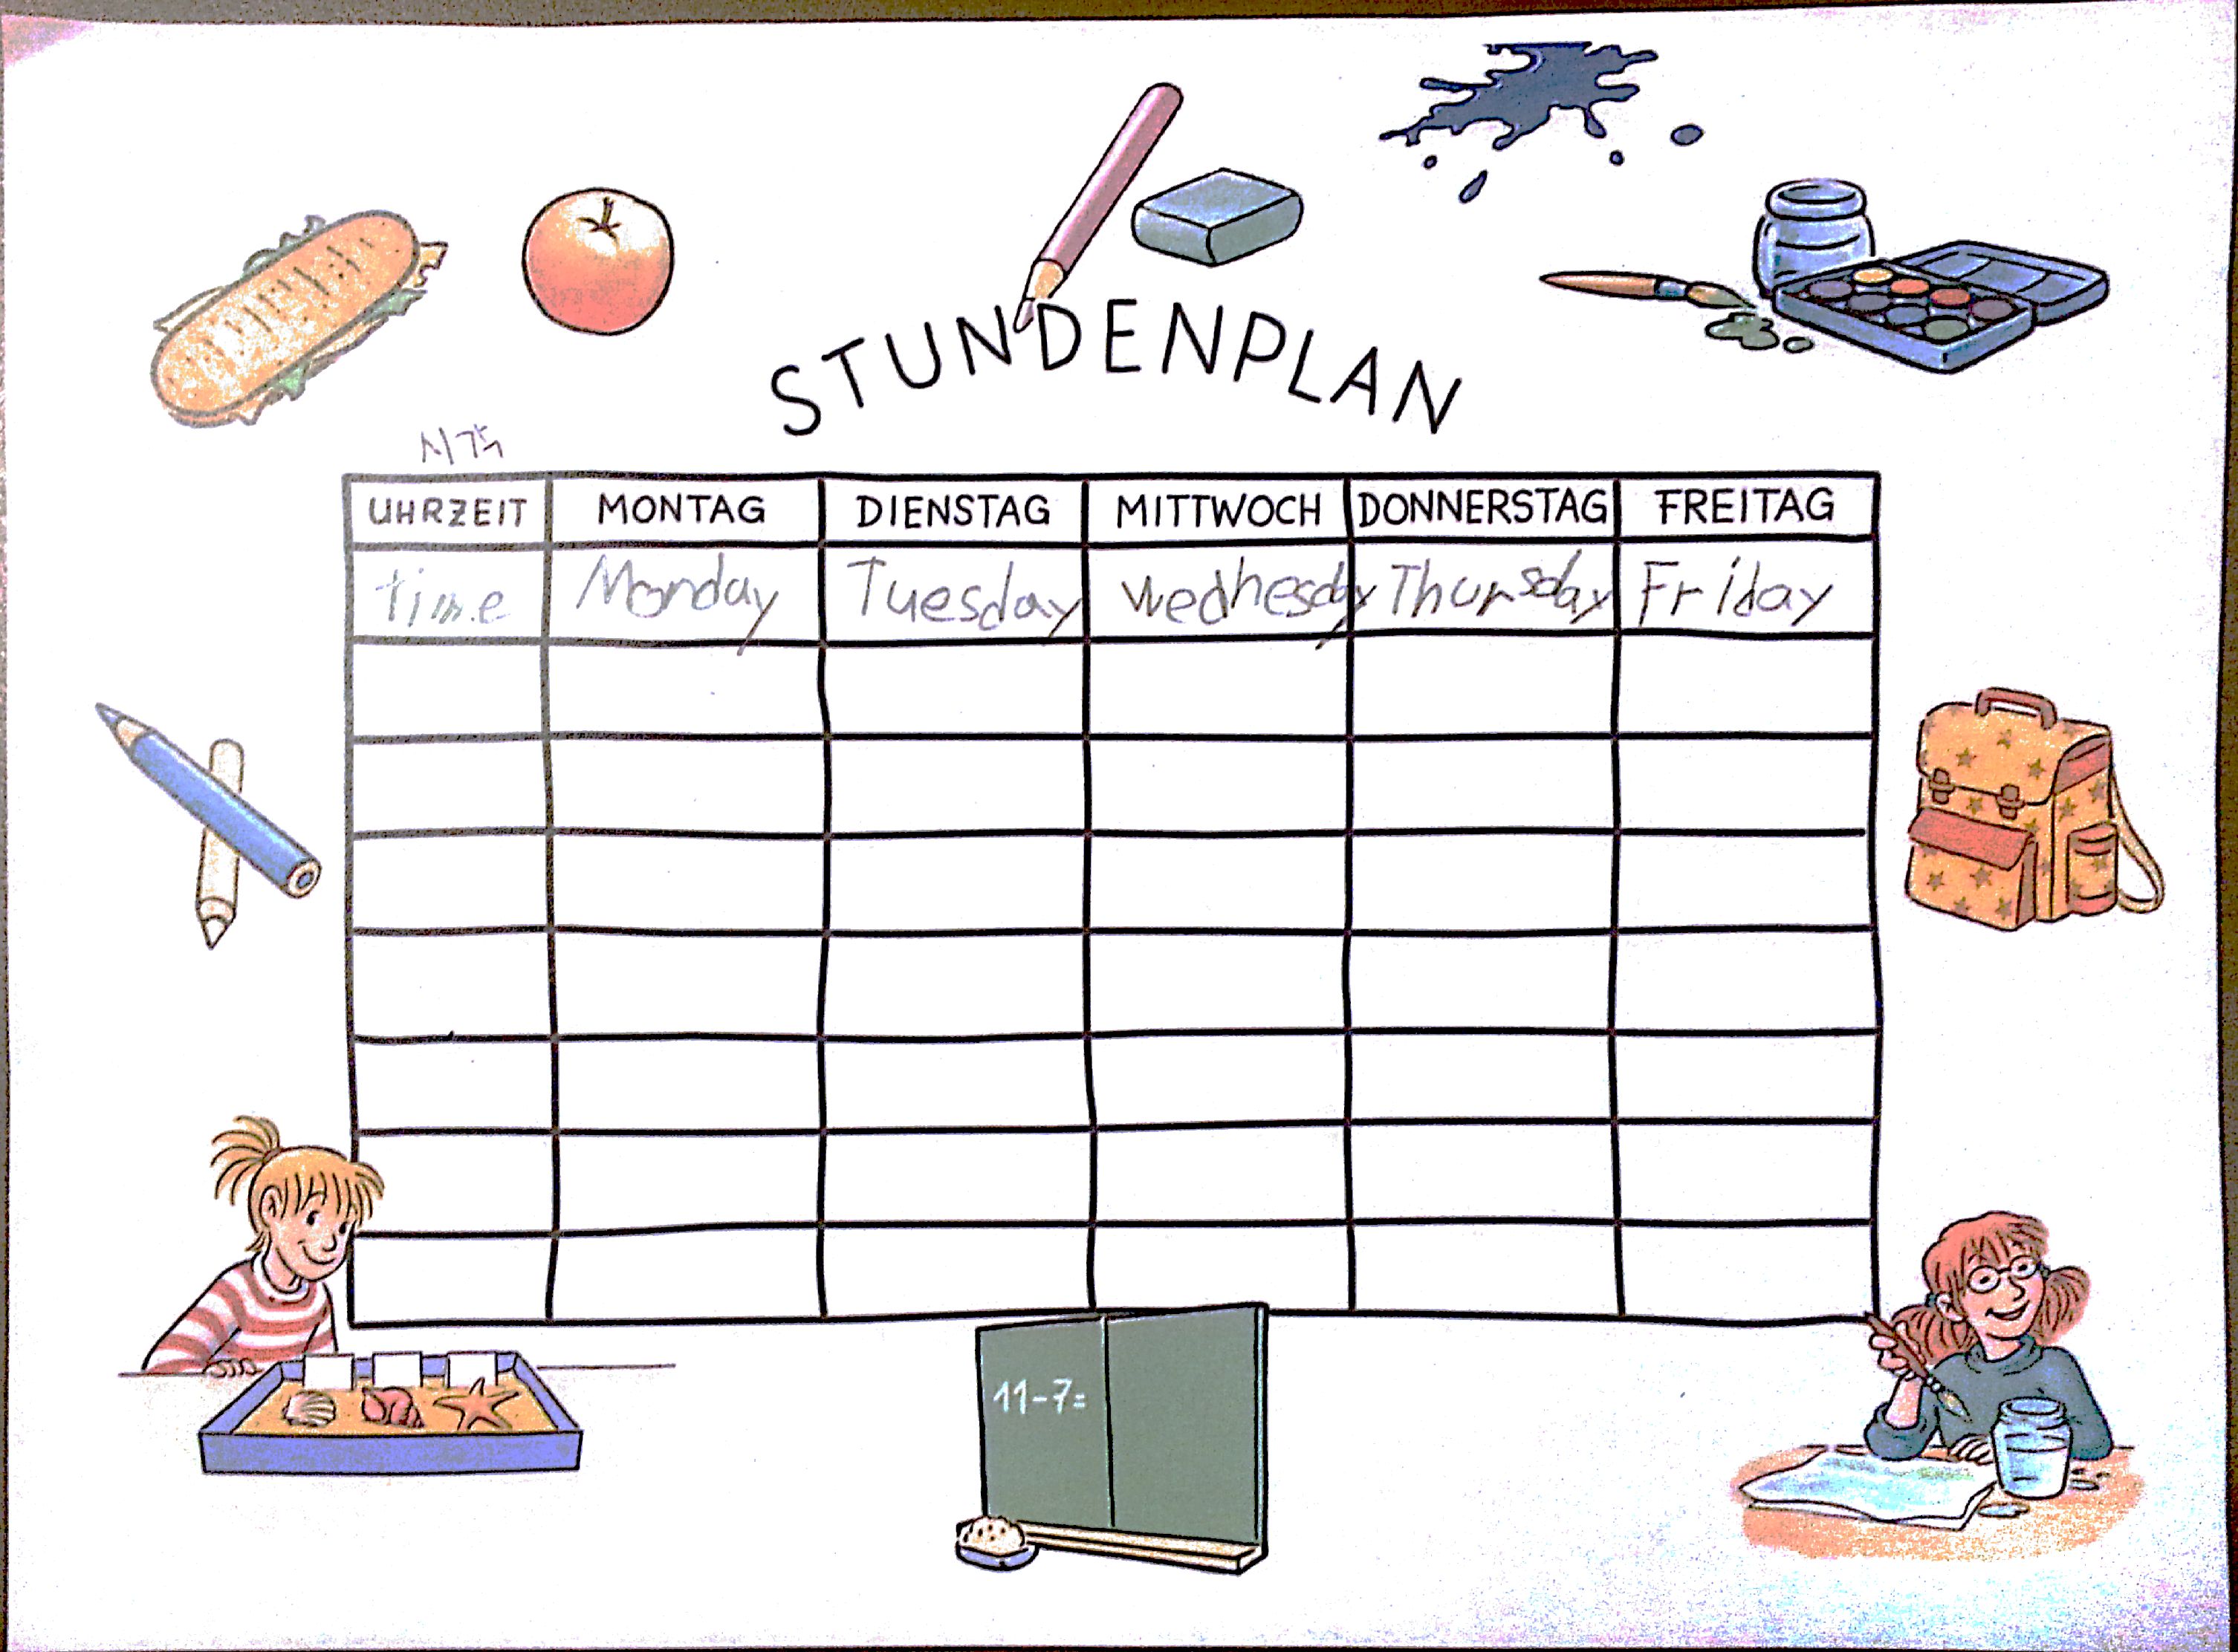 STUNDENPLAN
UHRZEIT MONTAG DIENSTAG MITTWOCH DONNERSTAG FREITAG
time Monday Tuesday Wednesday Thursday Friday
11-7=